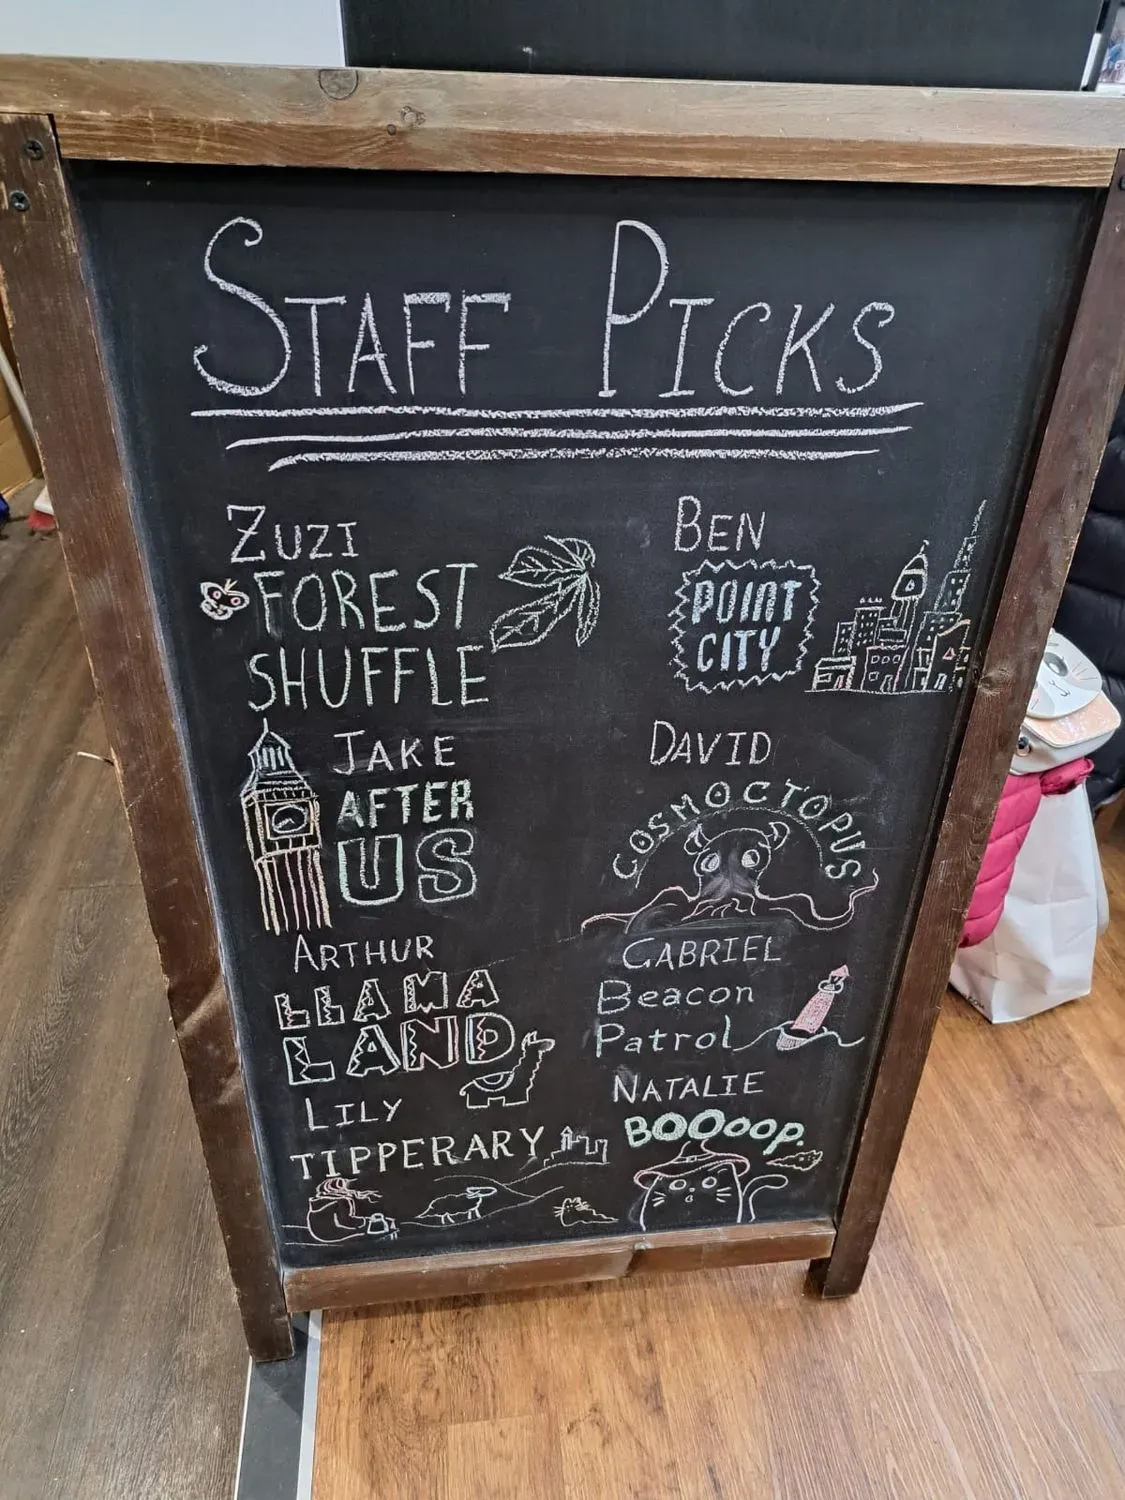 STAFF PICKS
ZUZI
FOREST
SHUFFLE
BEN
POINT
CITY
JAKE
AFTER
US
DAVID
COSMOCTOPUS
ARTHUR
LLAMA
LAND
GABRIEL
Beacon
Patrol
LILY
TIPPERARY
NATALIE
BOOooP.